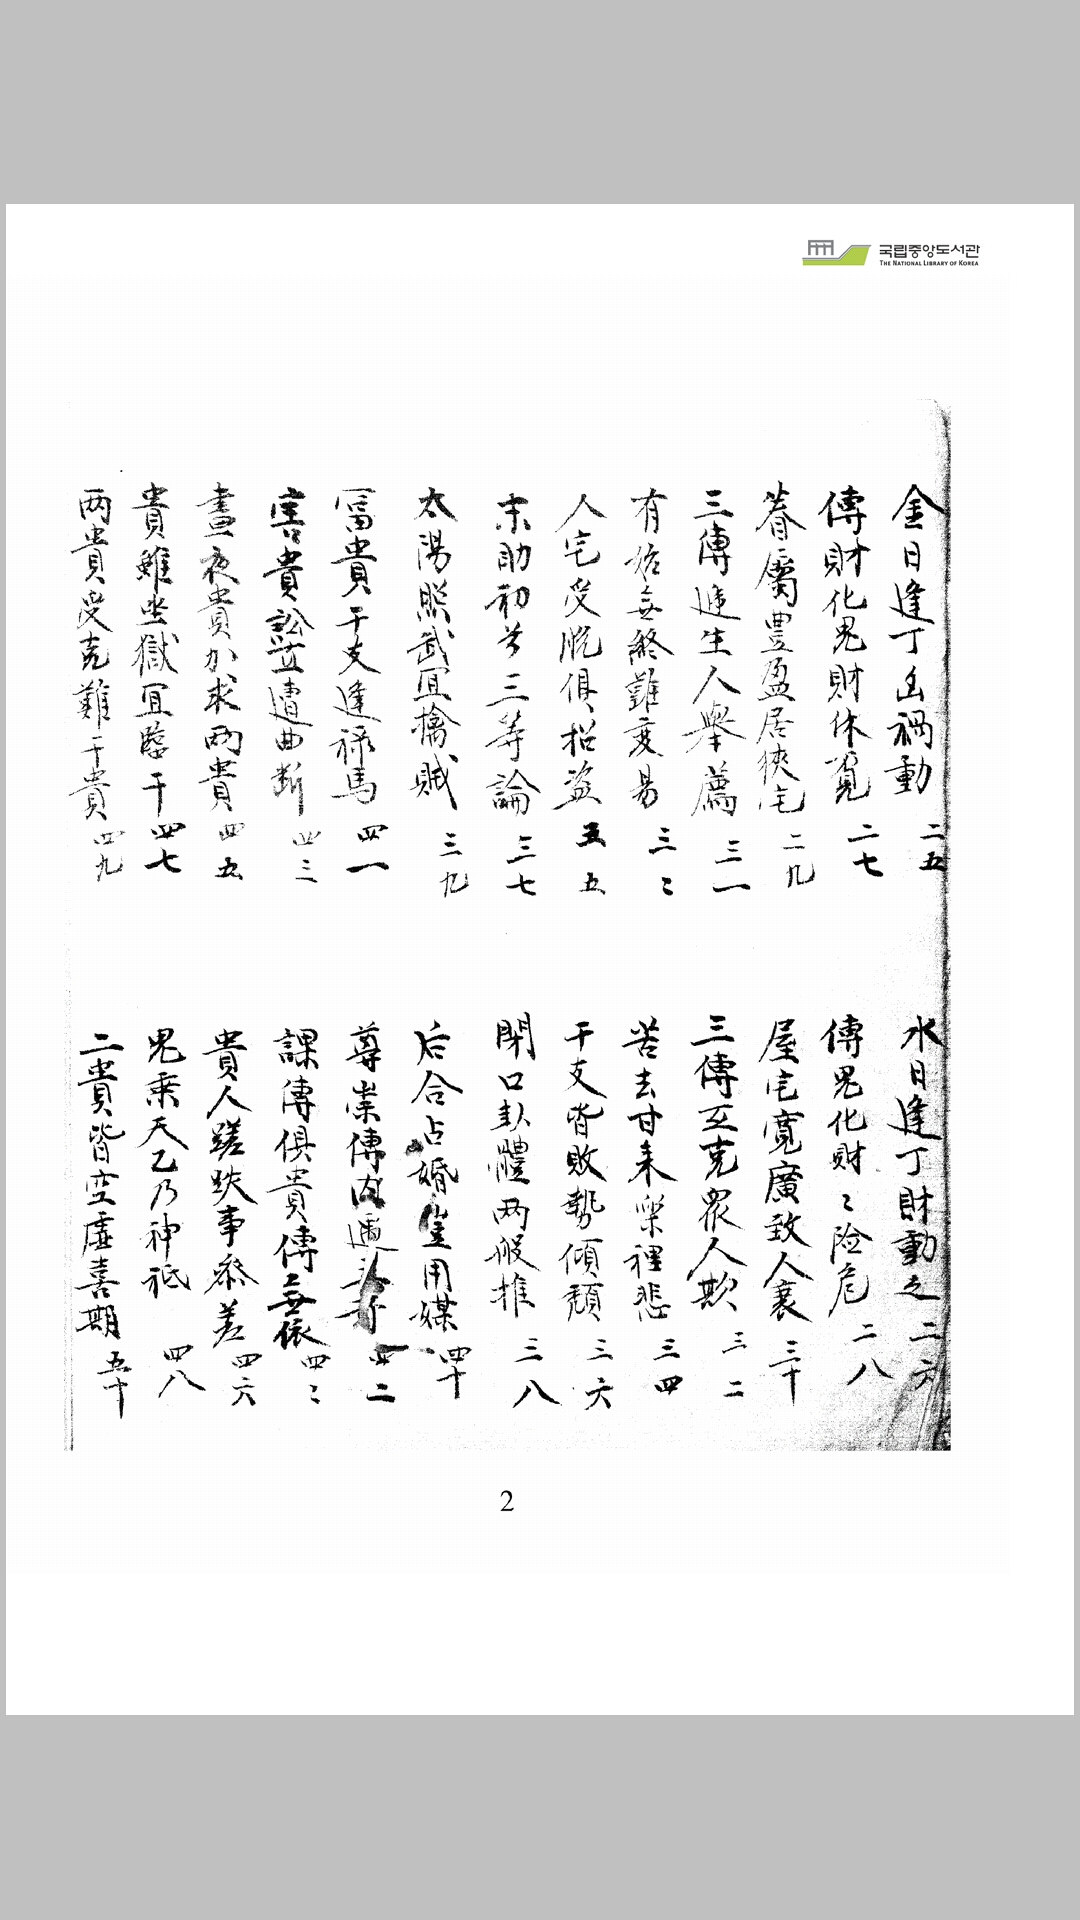 국립중앙도서관
THE NATIONAL LIBRARY OF KOREA
金日逢丁凶禍動 二五
水日逢丁財動之 二六
傳財化鬼財休覓 二七
傳鬼化財〻险危 二八
眷屬豊盈居狹宅 二九
屋宅寬廣致人衰 三十
三傳遞生人擧薦 三一
三傳互克衆人欺 三二
有始無終難变易 三〻
苦去甘来樂裡悲 三四
人宅受脫俱招盗 五五
干支皆敗勢傾頹 三六
末助初兮三等論 三七
閉口卦體两般推 三八
太陽照武宜擒賊 三九
后合占婚豈用媒 四十
冨貴干支逢祿馬 四一
尊崇傳内遇三奇 四二
害貴訟直遭曲断 四三
課傳俱貴傳無依 四〻
晝夜貴加求两貴 四五
貴人蹉跌事參差 四六
貴雖坐獄宜臨干 四七
鬼乘天乙乃神祇 四八
两貴受克難干貴 四九
二貴皆空虛喜期 五十
2